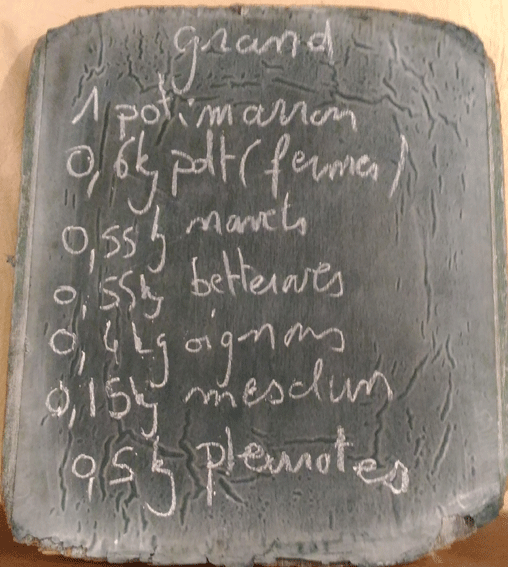 grand
1 potimarron
0,6kg pdt (fermes)
0,55kg navets
0,55kg betteraves
0,4kg oignons
0,15kg mesclun
0,5kg pleurotes